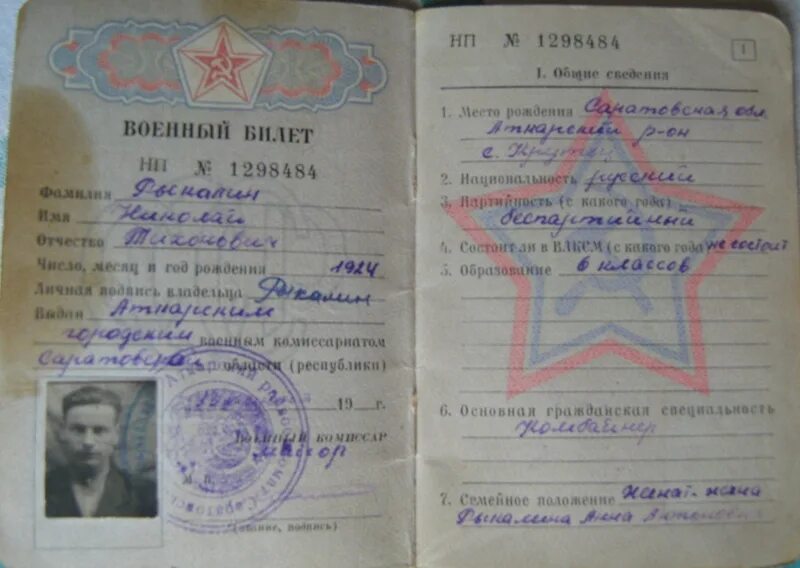 ВОЕННЫЙ БИЛЕТ
НП № 1298484
Фамилия Рыкалин
Имя Николай
Отчество Тихонович
Число, месяц и год рождения 1924
Личная подпись владельца Рыкалин
Выдан Аткарским
городским военным комиссариатом
Саратовской области (республики)
19 г.
ВОЕННЫЙ КОМИССАР
майор
М. П.
(звание, подпись)
НП № 1298484
1
I. Общие сведения
1. Место рождения Саратовская обл.
Аткарский р-он
с.
2. Национальность русский
3. Партийность (с какого года)
беспартийный
4. Состоит ли в ВЛКСМ (с какого года) не состоит
5. Образование 6 классов
6. Основная гражданская специальность
Комбайнер
7. Семейное положение Женат-жена
Рыкалина Анна